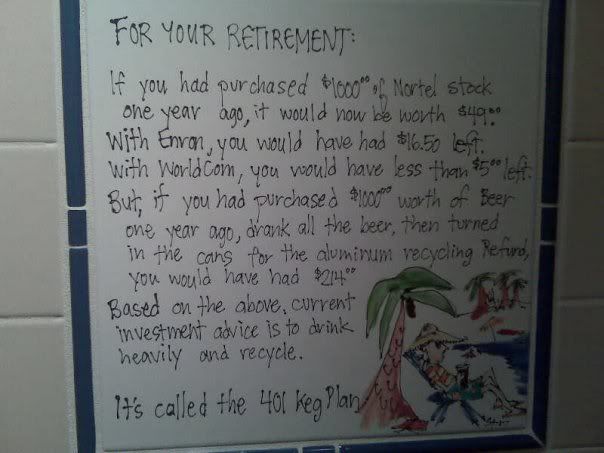 FOR YOUR RETIREMENT:
If you had purchased $1000⁰⁰ of Nortel stock
one year ago, it would now be worth $49.⁰⁰
With Enron, you would have had $16.50 left.
With WorldCom, you would have less than $5⁰⁰ left.
But, if you had purchased $1000⁰⁰ worth of Beer
one year ago, drank all the beer, then turned
in the cans for the aluminum recycling Refund,
you would have had $214⁰⁰
Based on the above, current
investment advice is to drink
heavily and recycle.
It's called the 401 Keg Plan